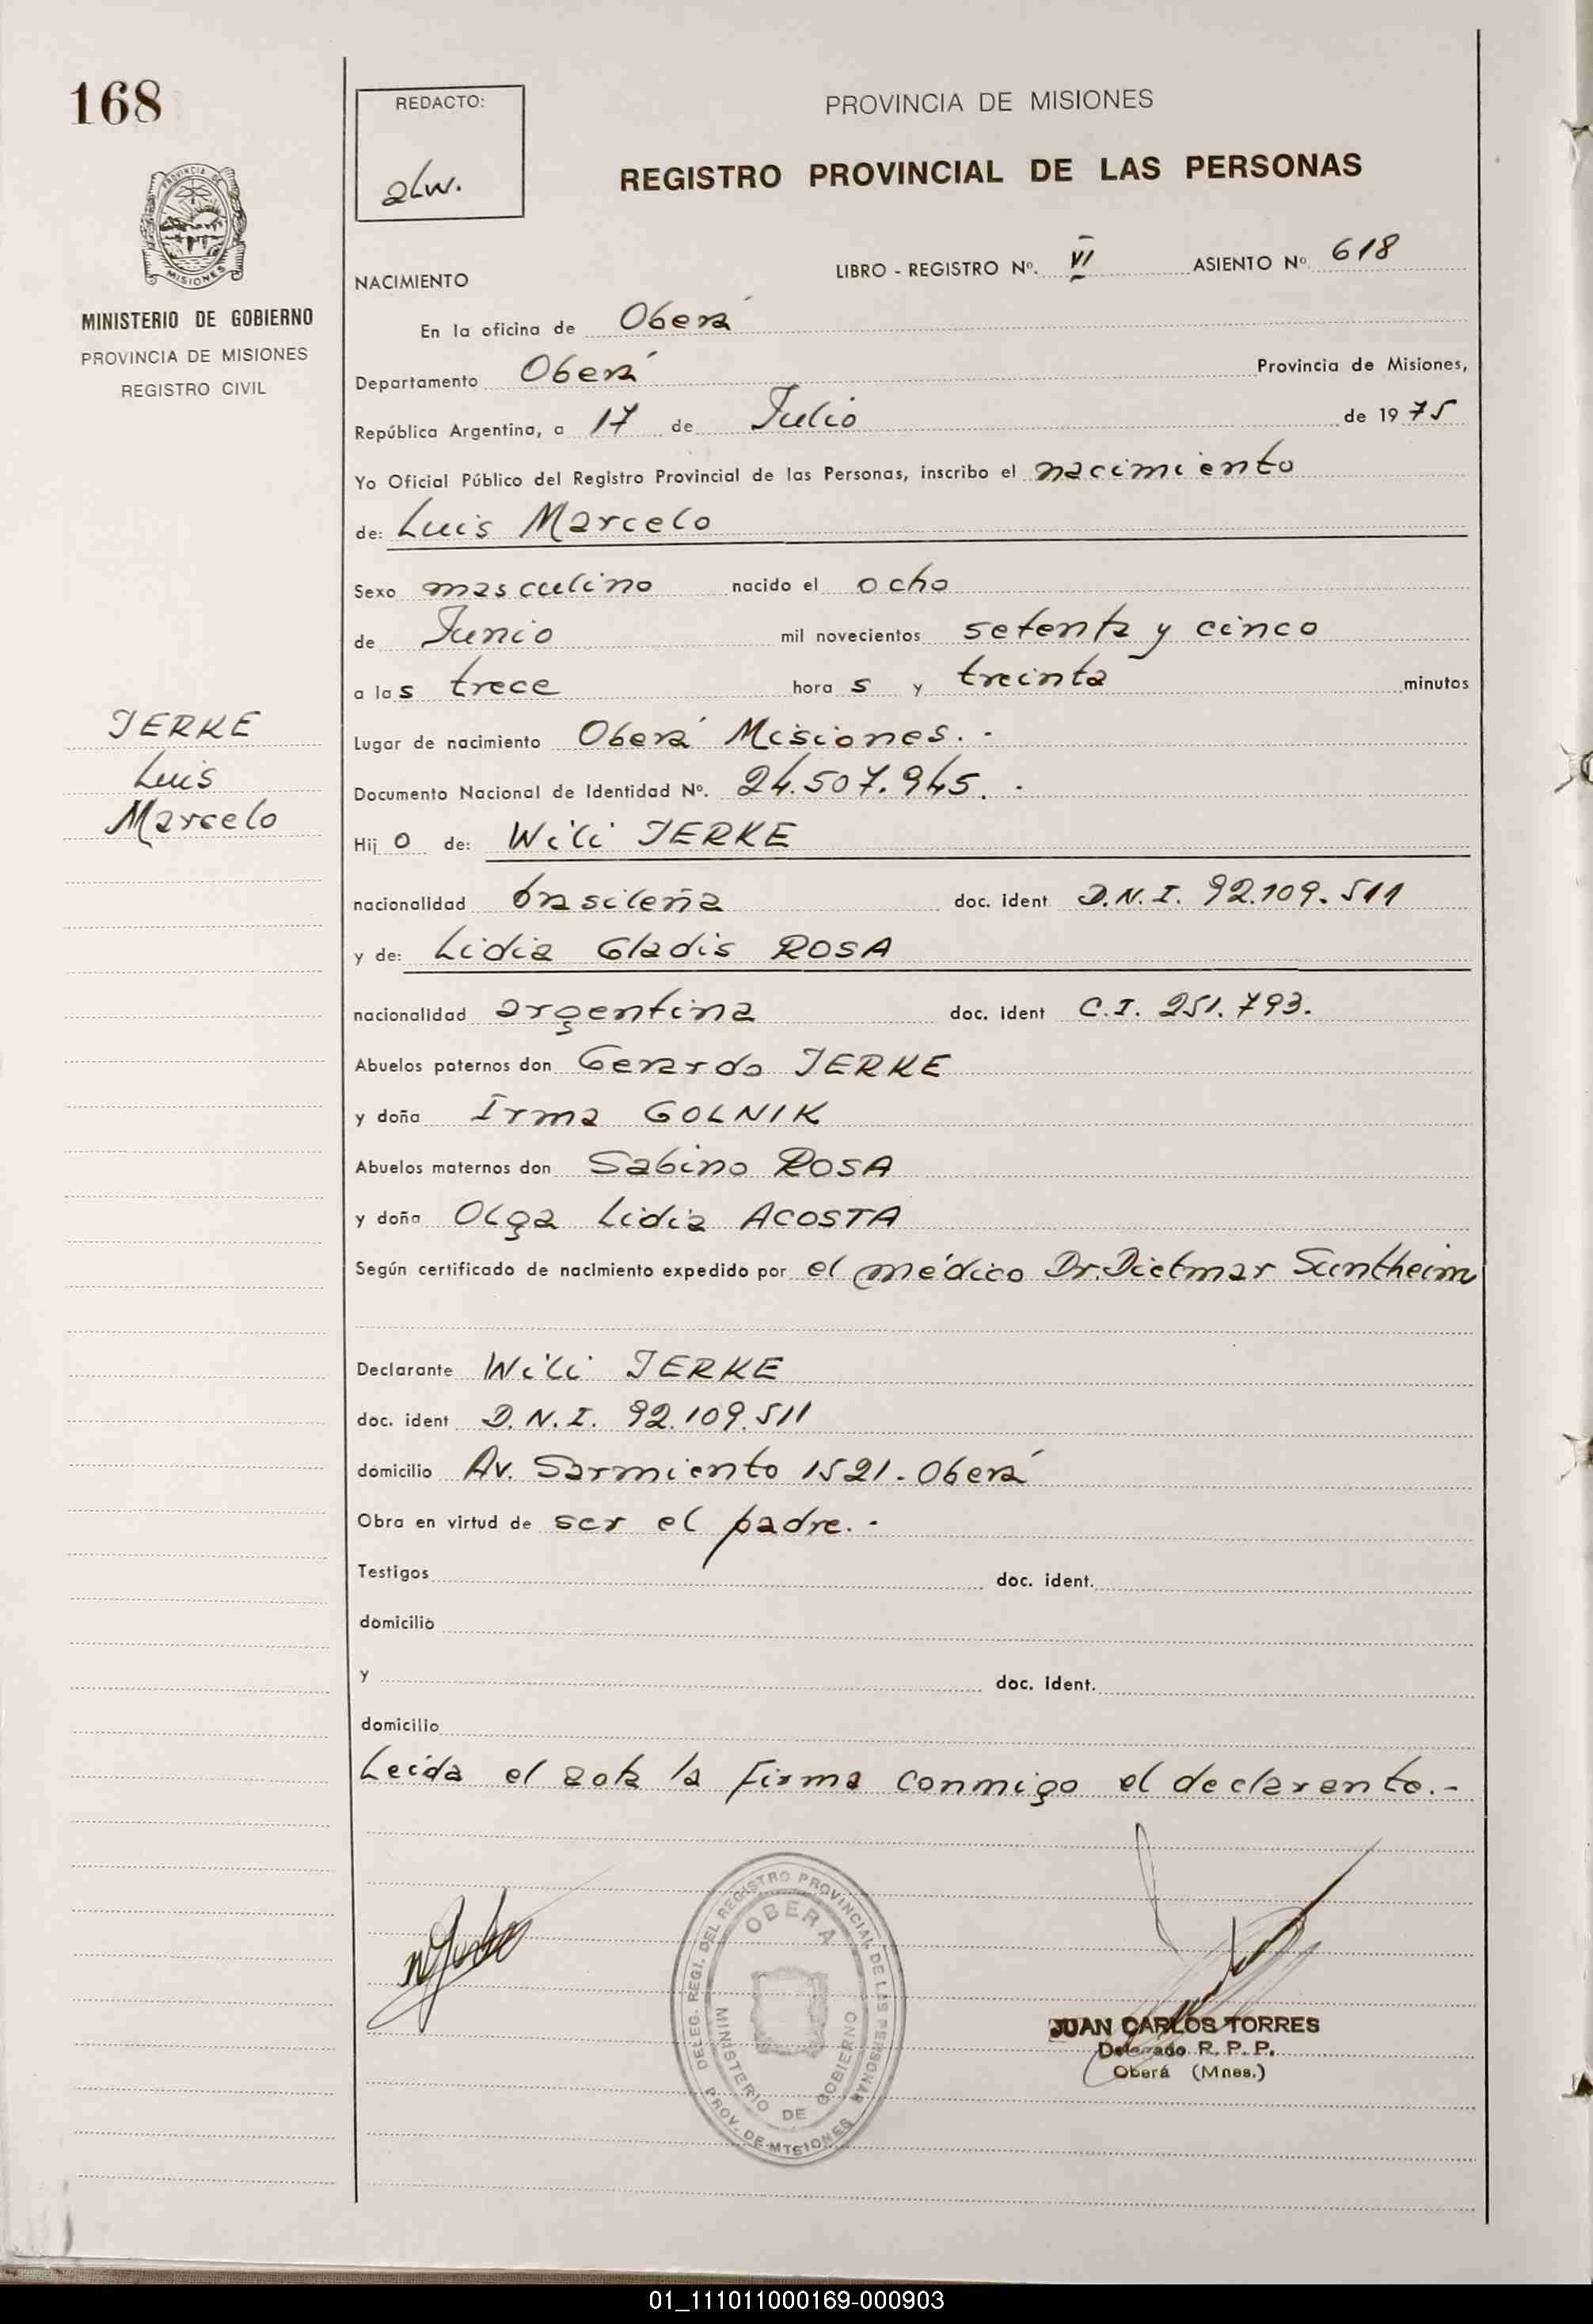 168
MINISTERIO DE GOBIERNO
PROVINCIA DE MISIONES
REGISTRO CIVIL
JERKE
Luis
Marcelo
REDACTO:
PROVINCIA DE MISIONES
REGISTRO PROVINCIAL DE LAS PERSONAS
NACIMIENTO
LIBRO - REGISTRO Nº. VI ASIENTO Nº. 618
En la oficina de Oberá
Departamento Oberá Provincia de Misiones,
República Argentina, a 17 de Julio de 1975
Yo Oficial Público del Registro Provincial de las Personas, inscribo el nacimiento
de: Luis Marcelo
Sexo masculino nacido el ocho
de Junio mil novecientos setenta y cinco
a las trece horas y treinta minutos
Lugar de nacimiento Oberá Misiones. -
Documento Nacional de Identidad Nº. 24.507.945. -
Hijo de: Wili JERKE
nacionalidad brasileña doc. ident D.N.I. 92.109.511
y de: Lidia Gladis ROSA
nacionalidad argentina doc. ident C.I. 251.793.
Abuelos paternos don Gerardo JERKE
y doña Irma GOLNIK
Abuelos maternos don Sabino ROSA
y doña Olga Lidia ACOSTA
Según certificado de nacimiento expedido por el médico Dr. Dietmar Suntheim
Declarante Wili JERKE
doc. ident D.N.I. 92.109.511
domicilio Av. Sarmiento 1521 - Oberá
Obra en virtud de ser el padre. -
Testigos doc. ident.
domicilio
y doc. ident.
domicilio
Leída el acta la firma conmigo el declarante. -
DELEG. REGI. DEL REGISTRO PROVINCIAL DE LAS PERSONAS
OBERA
MINISTERIO DE GOBIERNO
PROV. DE MISIONES
JUAN CARLOS TORRES
Delegado R. P. P.
Oberá (Mnes.)
01_111011000169-000903